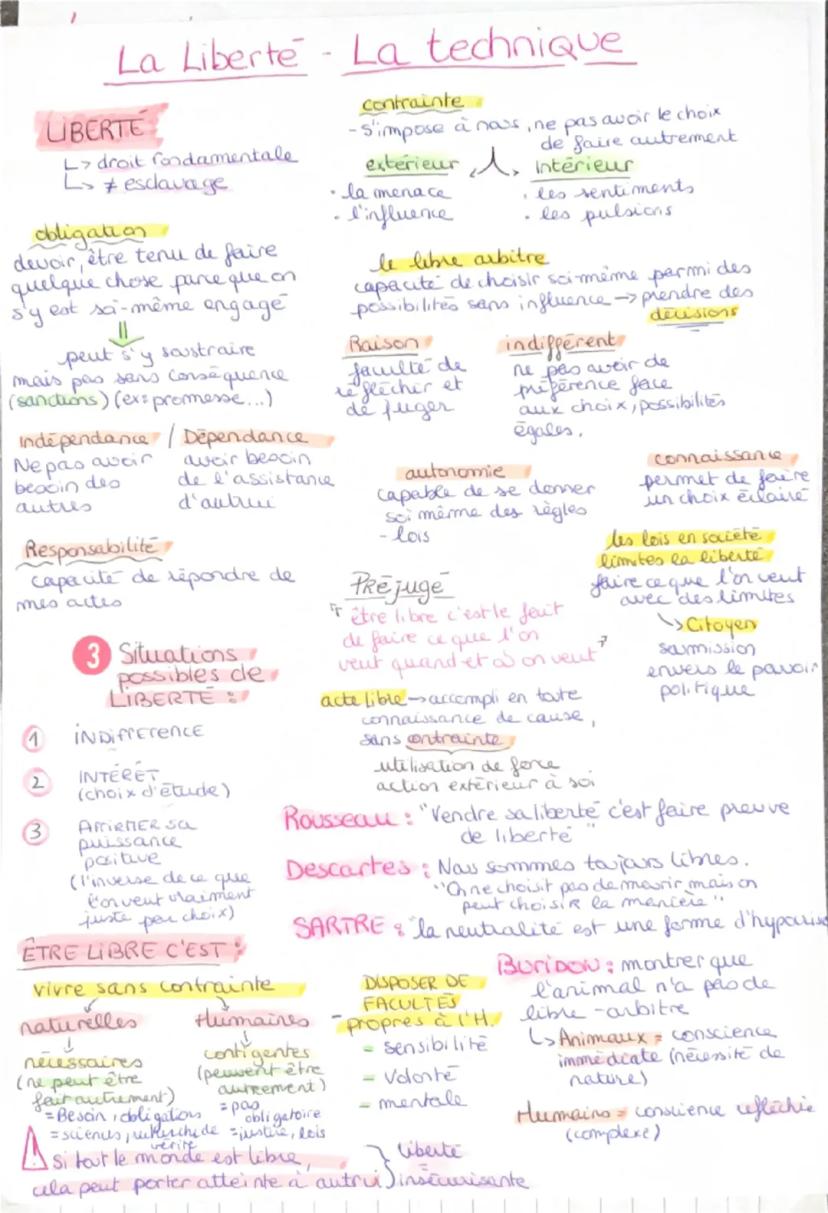 La Liberté - La technique
LIBERTÉ
↳ droit fondamentale
↳ ≠ esclavage
contrainte
- s'impose à nous, ne pas avoir le choix
de faire autrement
extérieur
· la menace
· l'influence
intérieur
· les sentiments
· les pulsions
obligation
devoir, être tenu de faire
quelque chose parce que on
s'y est soi-même engagé
peut s'y soustraire
mais pas sans conséquence
(sanctions) (ex: promesse...)
le libre arbitre
capacité de choisir soi-même parmi des
possibilités sans influence → prendre des
décisions
Raison
faculté de
réfléchir et
de juger
indifférent
ne pas avoir de
préférence face
aux choix, possibilités
égales.
Indépendance / Dépendance
Ne pas avoir
besoin des
autres
avoir besoin
de l'assistance
d'autrui
autonomie
capable de se donner
soi même des règles
- lois
connaissance
permet de faire
un choix éclairé
Responsabilité
capacité de répondre de
mes actes
les lois en société
limites la liberté
faire ce que l'on veut
avec des limites
↳ Citoyen
soumission
envers le pouvoir
politique
Préjugé
"être libre c'est le fait
de faire ce que l'on
veut quand et où on veut"
3 Situations
possibles de
LIBERTÉ :
1 INDIFFERENCE
2 INTÉRÊT
(choix d'étude)
3 AFFIRMER sa
puissance
positive
(l'inverse de ce que
l'on veut vraiment
juste par choix)
acte libre → accompli en toute
connaissance de cause,
sans contrainte
utilisation de force
action extérieur à soi
Rousseau : "Vendre sa liberté c'est faire preuve
de liberté"
Descartes : Nous sommes toujours libres.
"On ne choisit pas de mourir mais on
peut choisir la manière"
SARTRE : "la neutralité est une forme d'
ÊTRE LIBRE C'EST :
vivre sans contrainte
naturelles
nécessaires
(ne peut être
fait autrement)
= Besoin, obligations
= sciences, recherche de
vérité
Humaines
contigentes
(peuvent être
autrement)
= pas
obligatoire
= justice, lois
- DISPOSER DE
FACULTÉS
propres à l'H.
- sensibilité
- volonté
- mentale
Buridou : montrer que
l'animal n'a pas de
libre-arbitre
↳ Animaux = conscience
immédiate (nécessité de
nature)
Humains = conscience réfléchie
(complexe)
Si tout le monde est libre,
cela peut porter atteinte à autrui
liberté
insécurisante